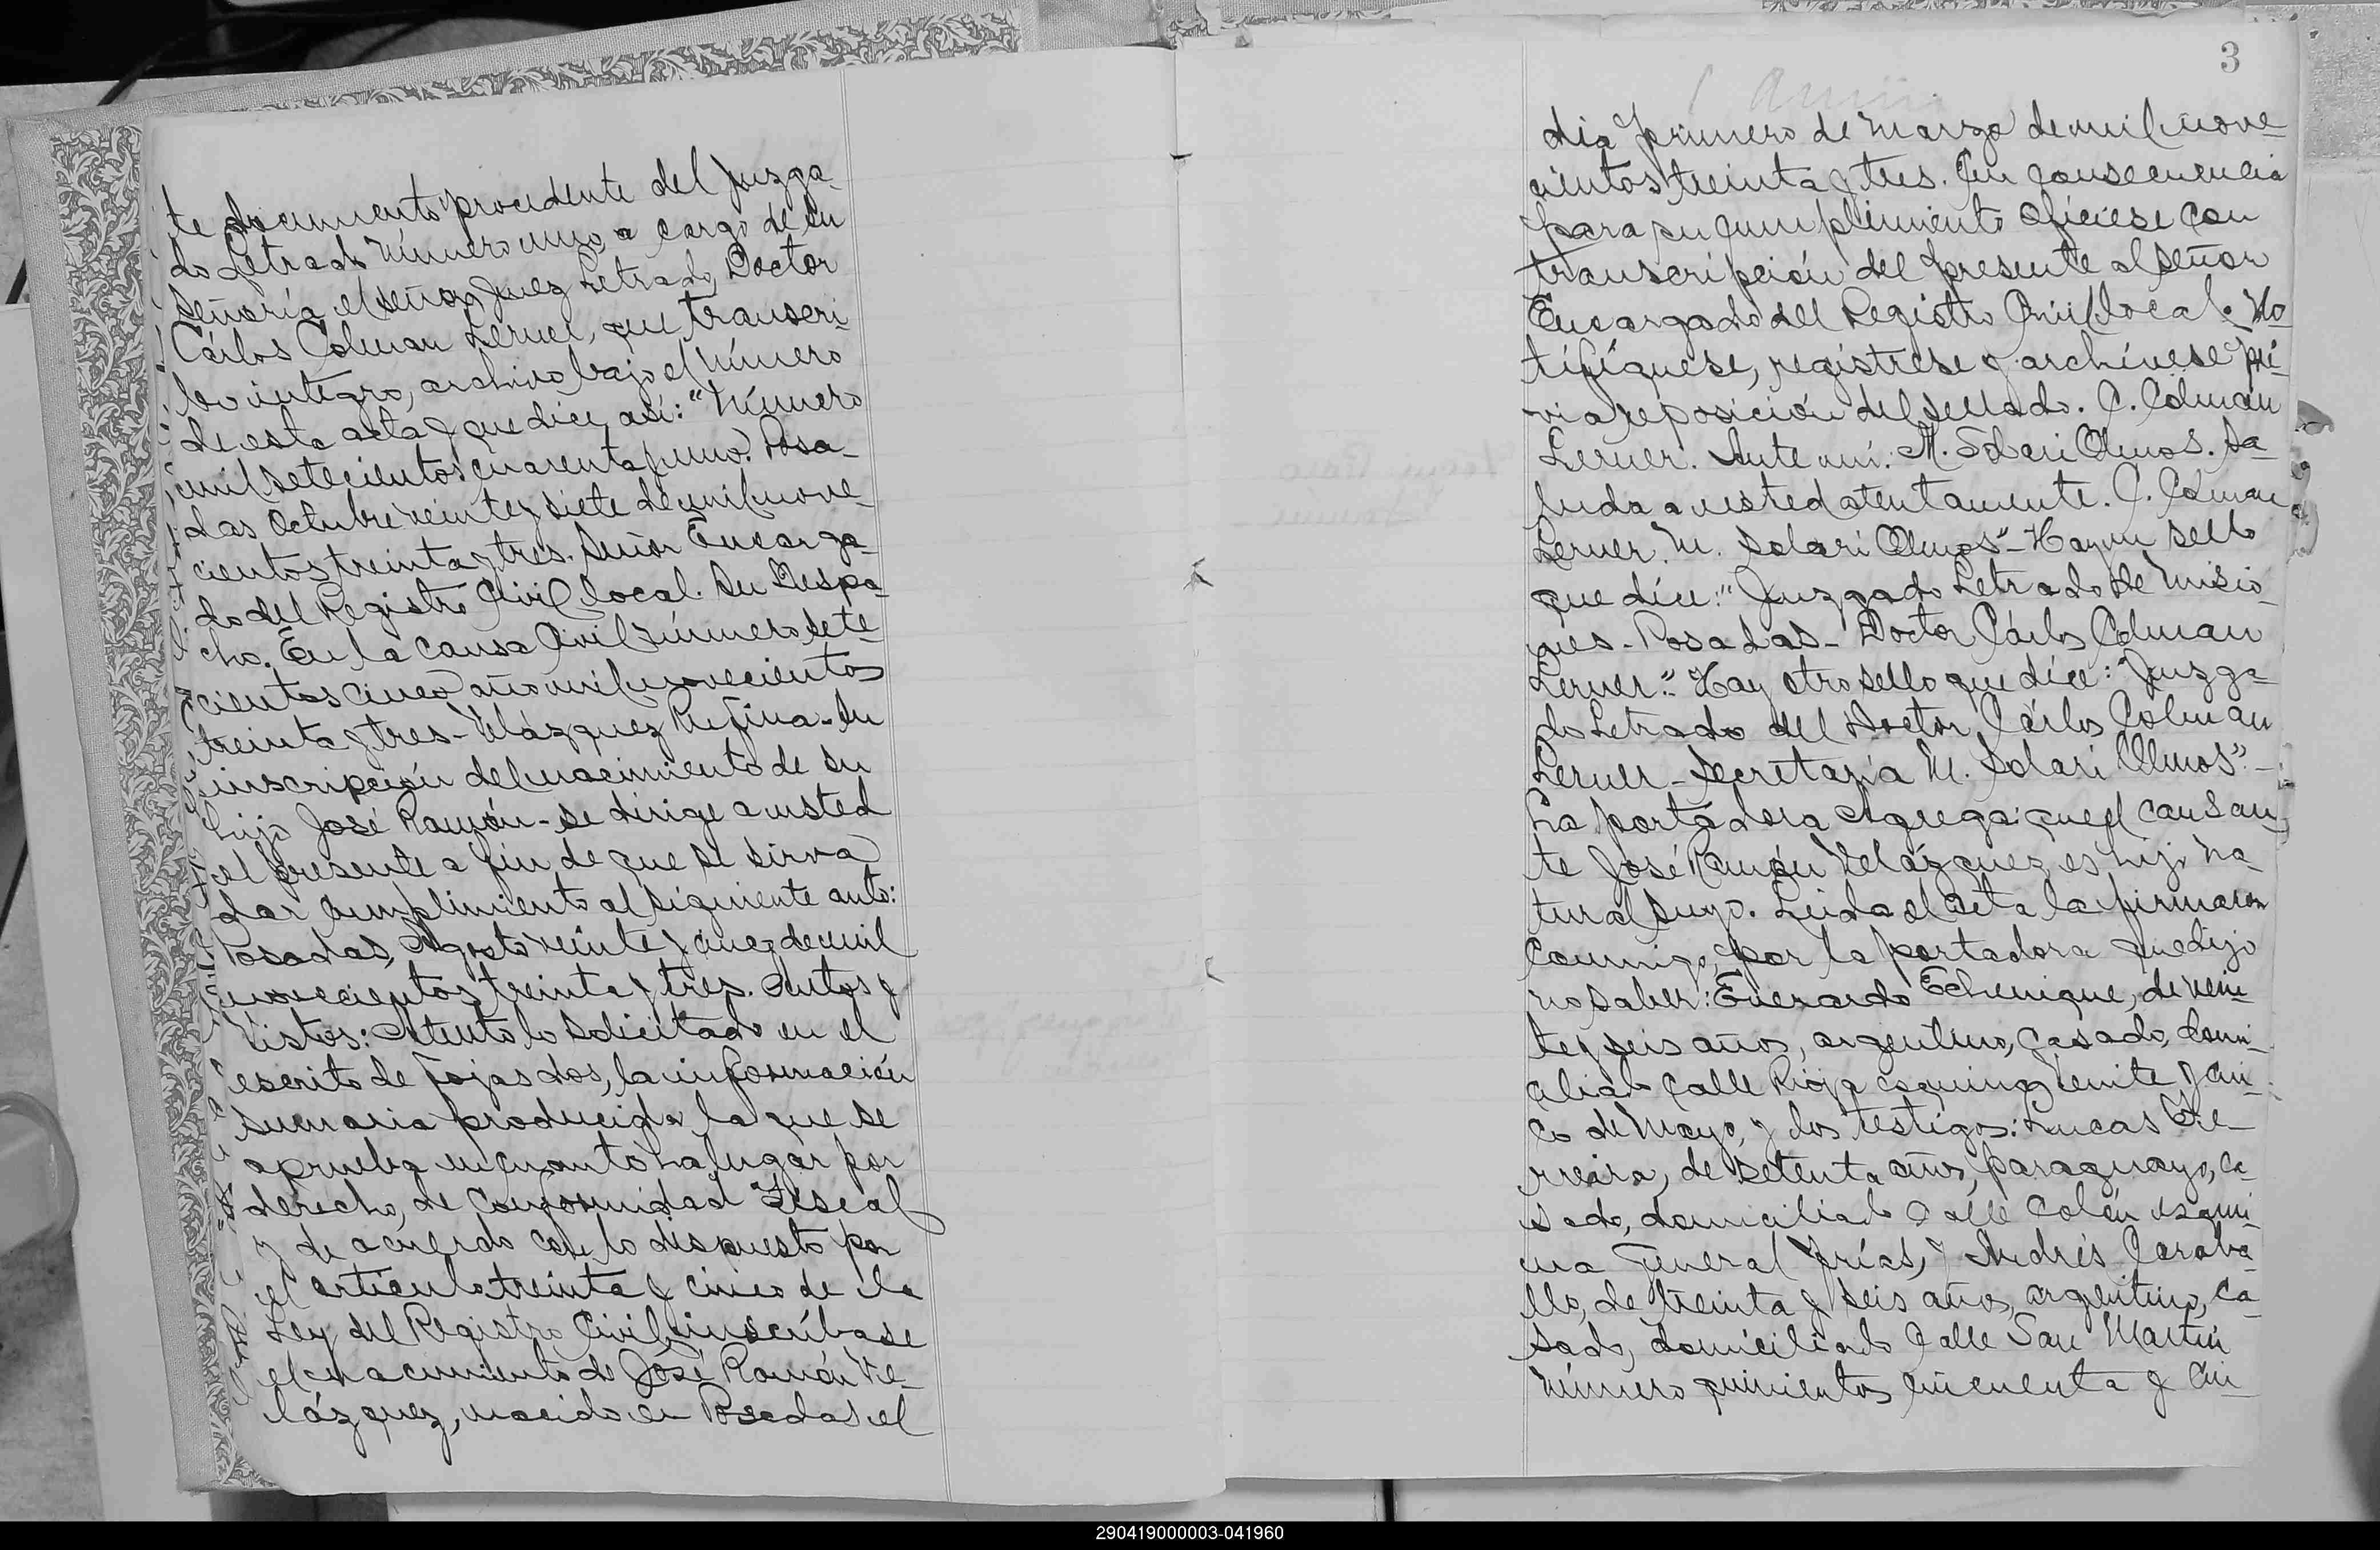 te documento procedente del Juzga-
do Letrado número uno, a cargo de su
Señoría el señor Juez Letrado, Doctor
Cárlos Colman Lerner, que transcri-
bo integro, archivo bajo el número
de esta acta y que dice así: "Número
mil setecientos cuarenta y uno. Posa-
das Octubre veinte y siete de mil nove-
cientos treinta y tres. Señor Encarga-
do del Registro Civil local. Su Despa-
cho. En la causa Civil número sete-
cientos cinco año mil novecientos
treinta y tres - Velázquez Rufina - su
inscripción del nacimiento de su
hijo José Ramón - se dirige a usted
el presente a fin de que se sirva
dar cumplimiento al siguiente auto:
Posadas, Agosto veinte y de mil
novecientos treinta y tres. Autos y
Vistos: Atento lo solicitado en el
escrito de fojas dos, la información
sumaria producida la que se
aprueba en cuanto ha lugar por
derecho, de conformidad Fiscal
y de acuerdo con lo dispuesto por
el artículo treinta y cinco de la
Ley del Registro Civil, inscríbase
el nacimiento de José Ramón Ve-
lázquez, nacido en Posadas el
3
dia primero de Marzo de mil nove-
cientos treinta y tres. En consecuencia
para su cumplimiento ofíciese con
transcripción del presente al señor
Encargado del Registro Civil local. No-
tifíquese, regístrese y archívese pré-
via reposición del sellado. C. Colman
Lerner. Ante mí: M. Solari Olmos. Sa-
luda a usted atentamente. C. Colman
Lerner. M. Solari Olmos" - Hay un sello
que dice: "Juzgado Letrado de Misio-
nes - Posadas - Doctor Cárlos Colman
Lerner." Hay otro sello que dice: "Juzga-
do Letrado del Doctor Cárlos Colman
Lerner - Secretaría M. Solari Olmos". -
La portadora Agrega: que el causan-
te José Ramón Velázquez es hijo na-
tural suyo. Leida el acta la firmaron
conmigo, por la portadora que dijo
no saber: Everardo Echenique, de vein-
te y seis años, argentino, casado, domi-
ciliado calle Rioja esquina Veinte y cin-
co de Mayo, y los testigos: Lucas
de setenta años, paraguayo, ca-
sado, domiciliado calle Colón esqui-
na General Frías, y Andrés Caraba-
llo, de treinta y seis años, argentino, ca-
sado, domiciliado Calle San Martín
número quinientos cincuenta y cin-
290419000003-041960